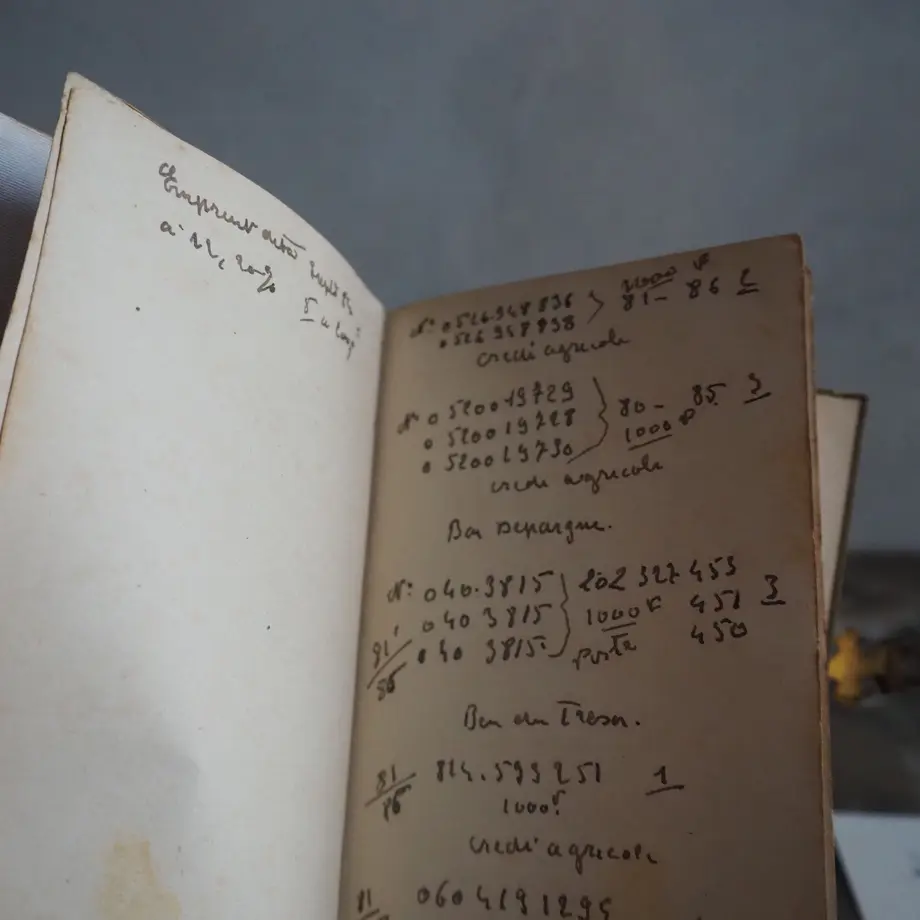 Emprunt
a 11, 20%
5 a
N° 0526.948 836
0526 948 838
1000 F
81 - 86 2
credi agricole
N° 0 520019729
0 520019728
0 520019730
80 - 85 3
1000 F
credi agricole
Bon Depargne.
N° 040.3815
040 3815
040 3815.
81
86
202 327 453
1000 F 451 3
Poste 450
Bon du Tresor.
81
86
814.593251 1
1000 F
credi agricole
81 060 4191295